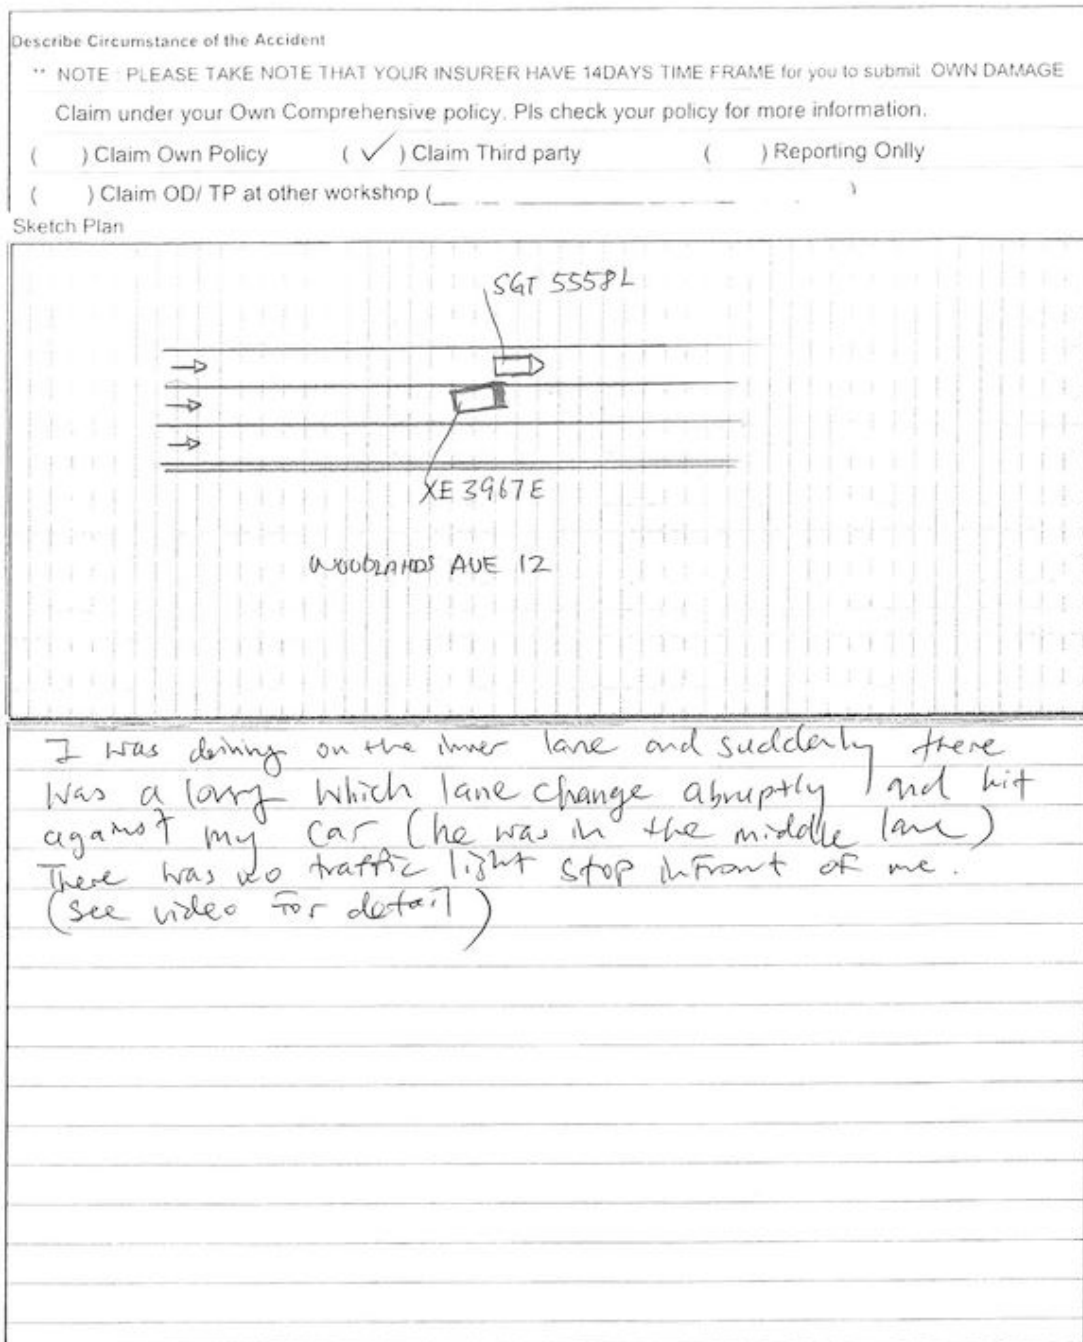 Describe Circumstance of the Accident
** NOTE : PLEASE TAKE NOTE THAT YOUR INSURER HAVE 14DAYS TIME FRAME for you to submit OWN DAMAGE
Claim under your Own Comprehensive policy. Pls check your policy for more information.
( ) Claim Own Policy ( ✓ ) Claim Third party ( ) Reporting Onlly
( ) Claim OD/ TP at other workshop ( )
Sketch Plan
SGT 5558L
XE 3967E
WOODLANDS AVE 12
I was driving on the inner lane and suddenly there
was a lorry which lane change abruptly and hit
against my car (he was in the middle lane)
There was no traffic light stop infront of me.
(see video for detail)